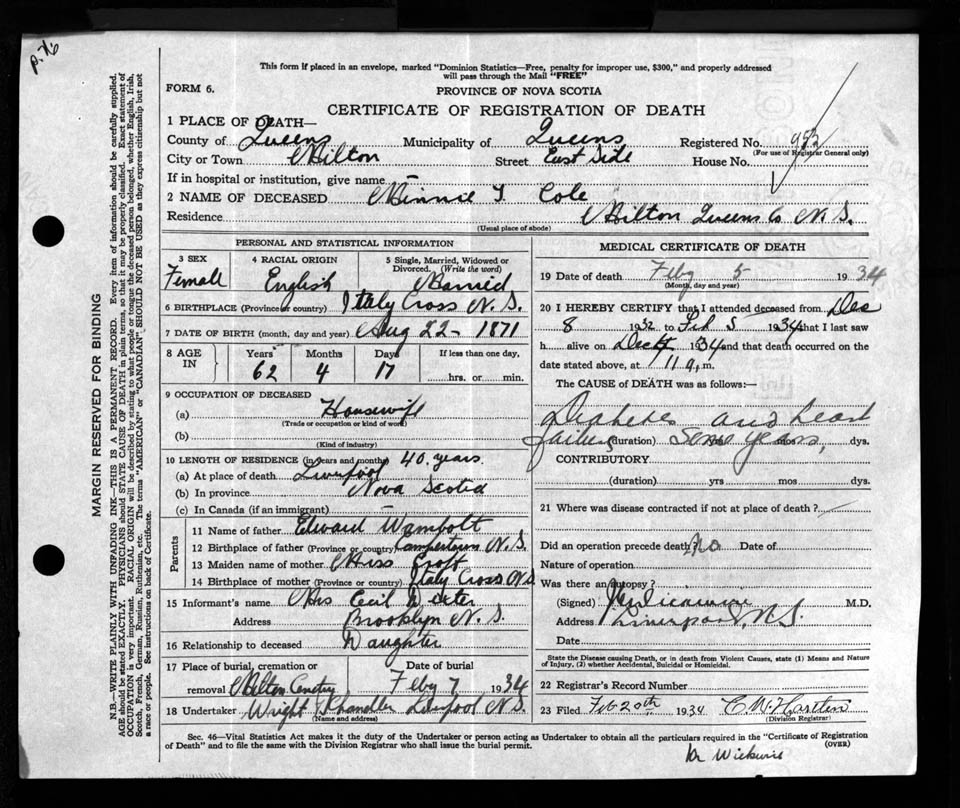 p. 76
This form if placed in an envelope, marked "Dominion Statistics—Free, penalty for improper use, $300," and properly addressed
will pass through the Mail "FREE"
FORM 6.
PROVINCE OF NOVA SCOTIA
CERTIFICATE OF REGISTRATION OF DEATH
1 PLACE OF DEATH—
County of Queens Municipality of Queens Registered No.
(For use of Registrar General only)
City or Town Milton Street East Side House No.
If in hospital or institution, give name —
2 NAME OF DECEASED Minnie T. Cole
Residence Milton Queens Co N.S.
(Usual place of abode)
PERSONAL AND STATISTICAL INFORMATION
3 SEX 4 RACIAL ORIGIN 5 Single, Married, Widowed or Divorced. (Write the word)
Female English Married
6 BIRTHPLACE (Province or country) Italy Cross N.S.
7 DATE OF BIRTH (month, day and year) Aug 22 - 1871
8 AGE IN Years Months Days If less than one day,
62 4 17 hrs. or min.
9 OCCUPATION OF DECEASED
(a) Housewife
(Trade or occupation or kind of work)
(b)
(Kind of industry)
10 LENGTH OF RESIDENCE (in years and months) 40. years.
(a) At place of death Liverpool
(b) In province Nova Scotia
(c) In Canada (if an immigrant) —
Parents
11 Name of father Edward Wambolt
12 Birthplace of father (Province or country) N.S.
13 Maiden name of mother Miss Croft
14 Birthplace of mother (Province or country) Italy Cross N.S.
15 Informant's name Mrs Cecil Dexter
Address Brooklyn N.S.
16 Relationship to deceased Daughter
17 Place of burial, cremation or removal Date of burial
Milton Cemetry Feby 7 1934
18 Undertaker Wright Chandler Liverpool N.S.
(Name and address)
MEDICAL CERTIFICATE OF DEATH
19 Date of death Feby 5 1934
(Month, day and year)
20 I HEREBY CERTIFY that I attended deceased from Dec
8 1932 to Feb 5 1934 that I last saw
h alive on 1934 and that death occurred on the
date stated above, at 11 a.m.
The CAUSE of DEATH was as follows:—
Diabetes and heart
failure (duration) some years mos dys.
CONTRIBUTORY
(duration) yrs mos dys.
21 Where was disease contracted if not at place of death?
Did an operation precede death? No Date of
Nature of operation
Was there an autopsy?
(Signed) M.D.
Address Liverpool, N.S.
Date
State the Disease causing Death, or in death from Violent Causes, state (1) Means and Nature
of Injury, (2) whether Accidental, Suicidal or Homicidal.
22 Registrar's Record Number
23 Filed Feb 20th 1934 C. W. Hartlen
(Division Registrar)
Sec. 46—Vital Statistics Act makes it the duty of the Undertaker or person acting as Undertaker to obtain all the particulars required in the "Certificate of Registration
of Death" and to file the same with the Division Registrar who shall issue the burial permit. (OVER)
Dr Wickwire
MARGIN RESERVED FOR BINDING
N.B.—WRITE PLAINLY WITH UNFADING INK—THIS IS A PERMANENT RECORD. Every item of information should be carefully supplied.
AGE should be stated EXACTLY. PHYSICIANS should STATE CAUSE OF DEATH in plain terms, so that it may be properly classified. Exact statement of
OCCUPATION is very important. RACIAL ORIGIN will be described by stating to what people or tongue the deceased person belonged, whether English, Irish,
Scotch, French, German, Russian, Ruthenian, etc. The terms "AMERICAN" or "CANADIAN" SHOULD NOT BE USED as they express citizenship but not
a race or people. See instructions on back of Certificate.